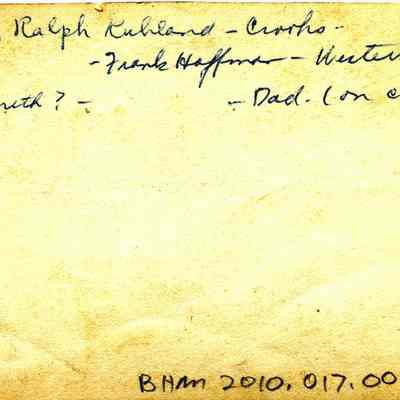 Ralph Ruhland - Crooks -
- Frank Hoffman - Western
? - - Dad. (on c
BHM 2010.017.00